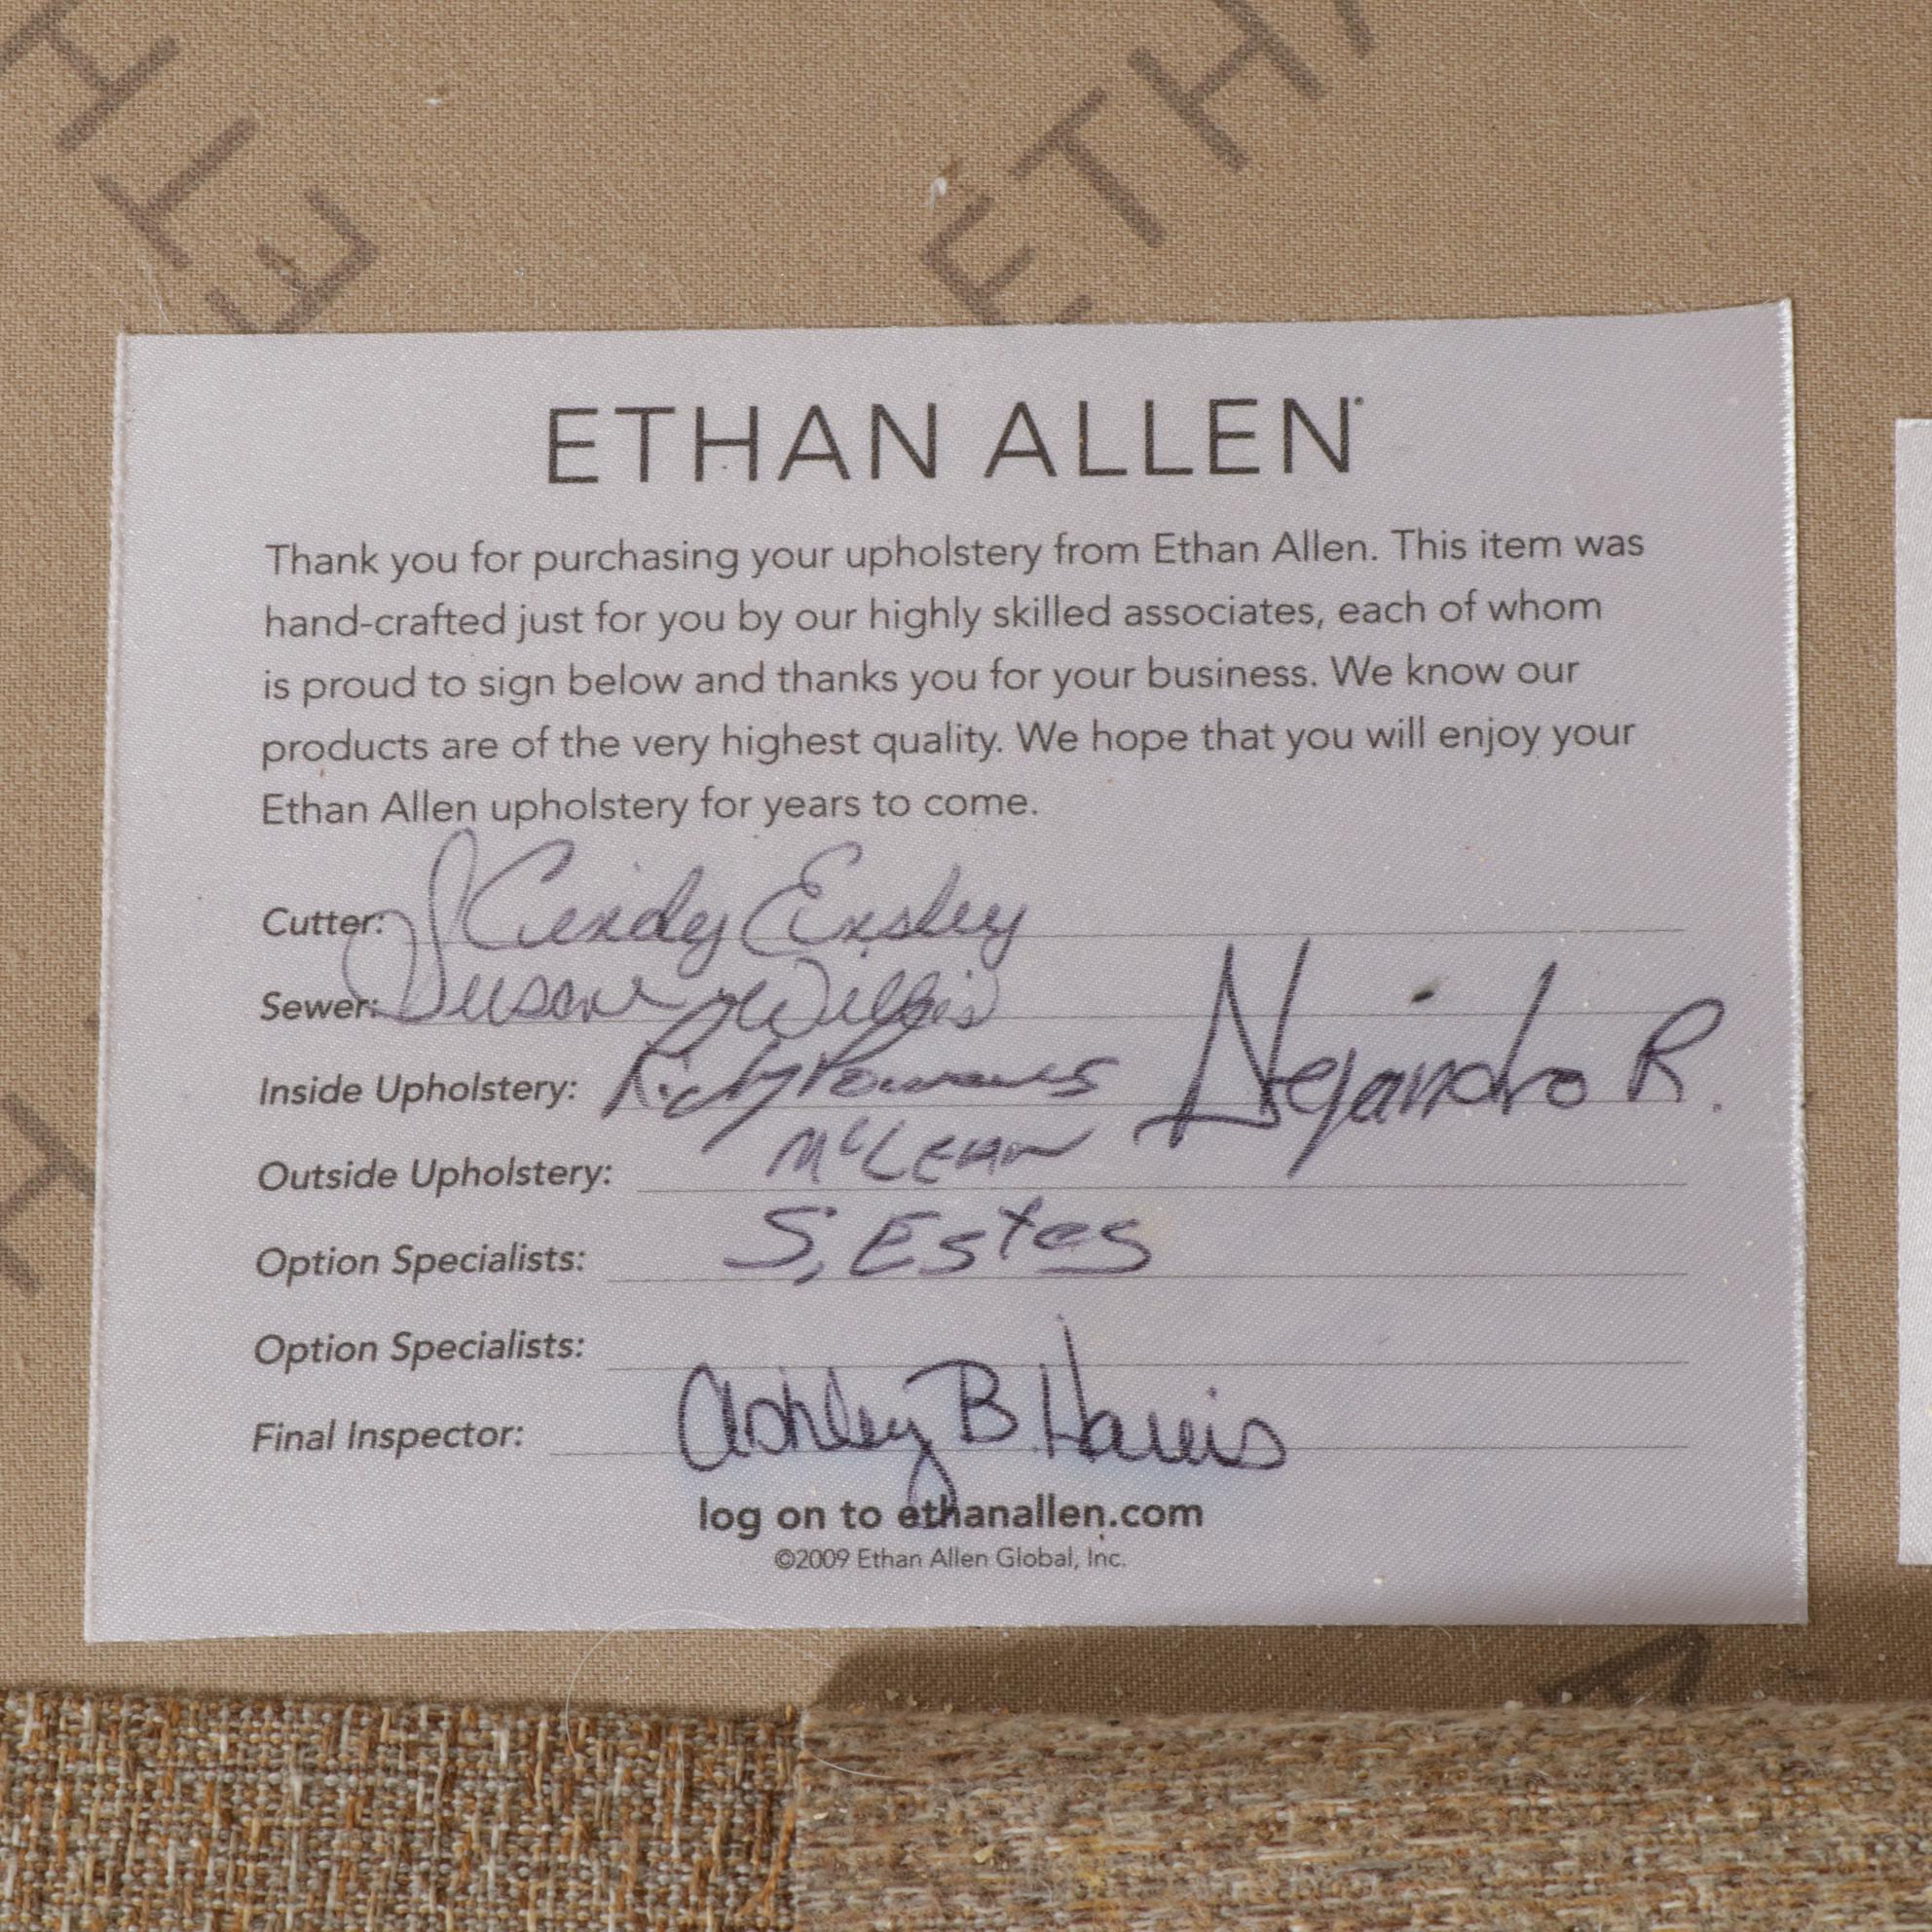 ETHA
ETH
ETHAN ALLEN
Thank you for purchasing your upholstery from Ethan Allen. This item was
hand-crafted just for you by our highly skilled associates, each of whom
is proud to sign below and thanks you for your business. We know our
products are of the very highest quality. We hope that you will enjoy your
Ethan Allen upholstery for years to come.
Cutter: Cindy Ensley
Sewer: Susan Willis
Inside Upholstery: Ricky Alejandro R.
Outside Upholstery: McLean
Option Specialists: S, Estes
Option Specialists:
Final Inspector: Ashley B. Harris
log on to ethanallen.com
©2009 Ethan Allen Global, Inc.